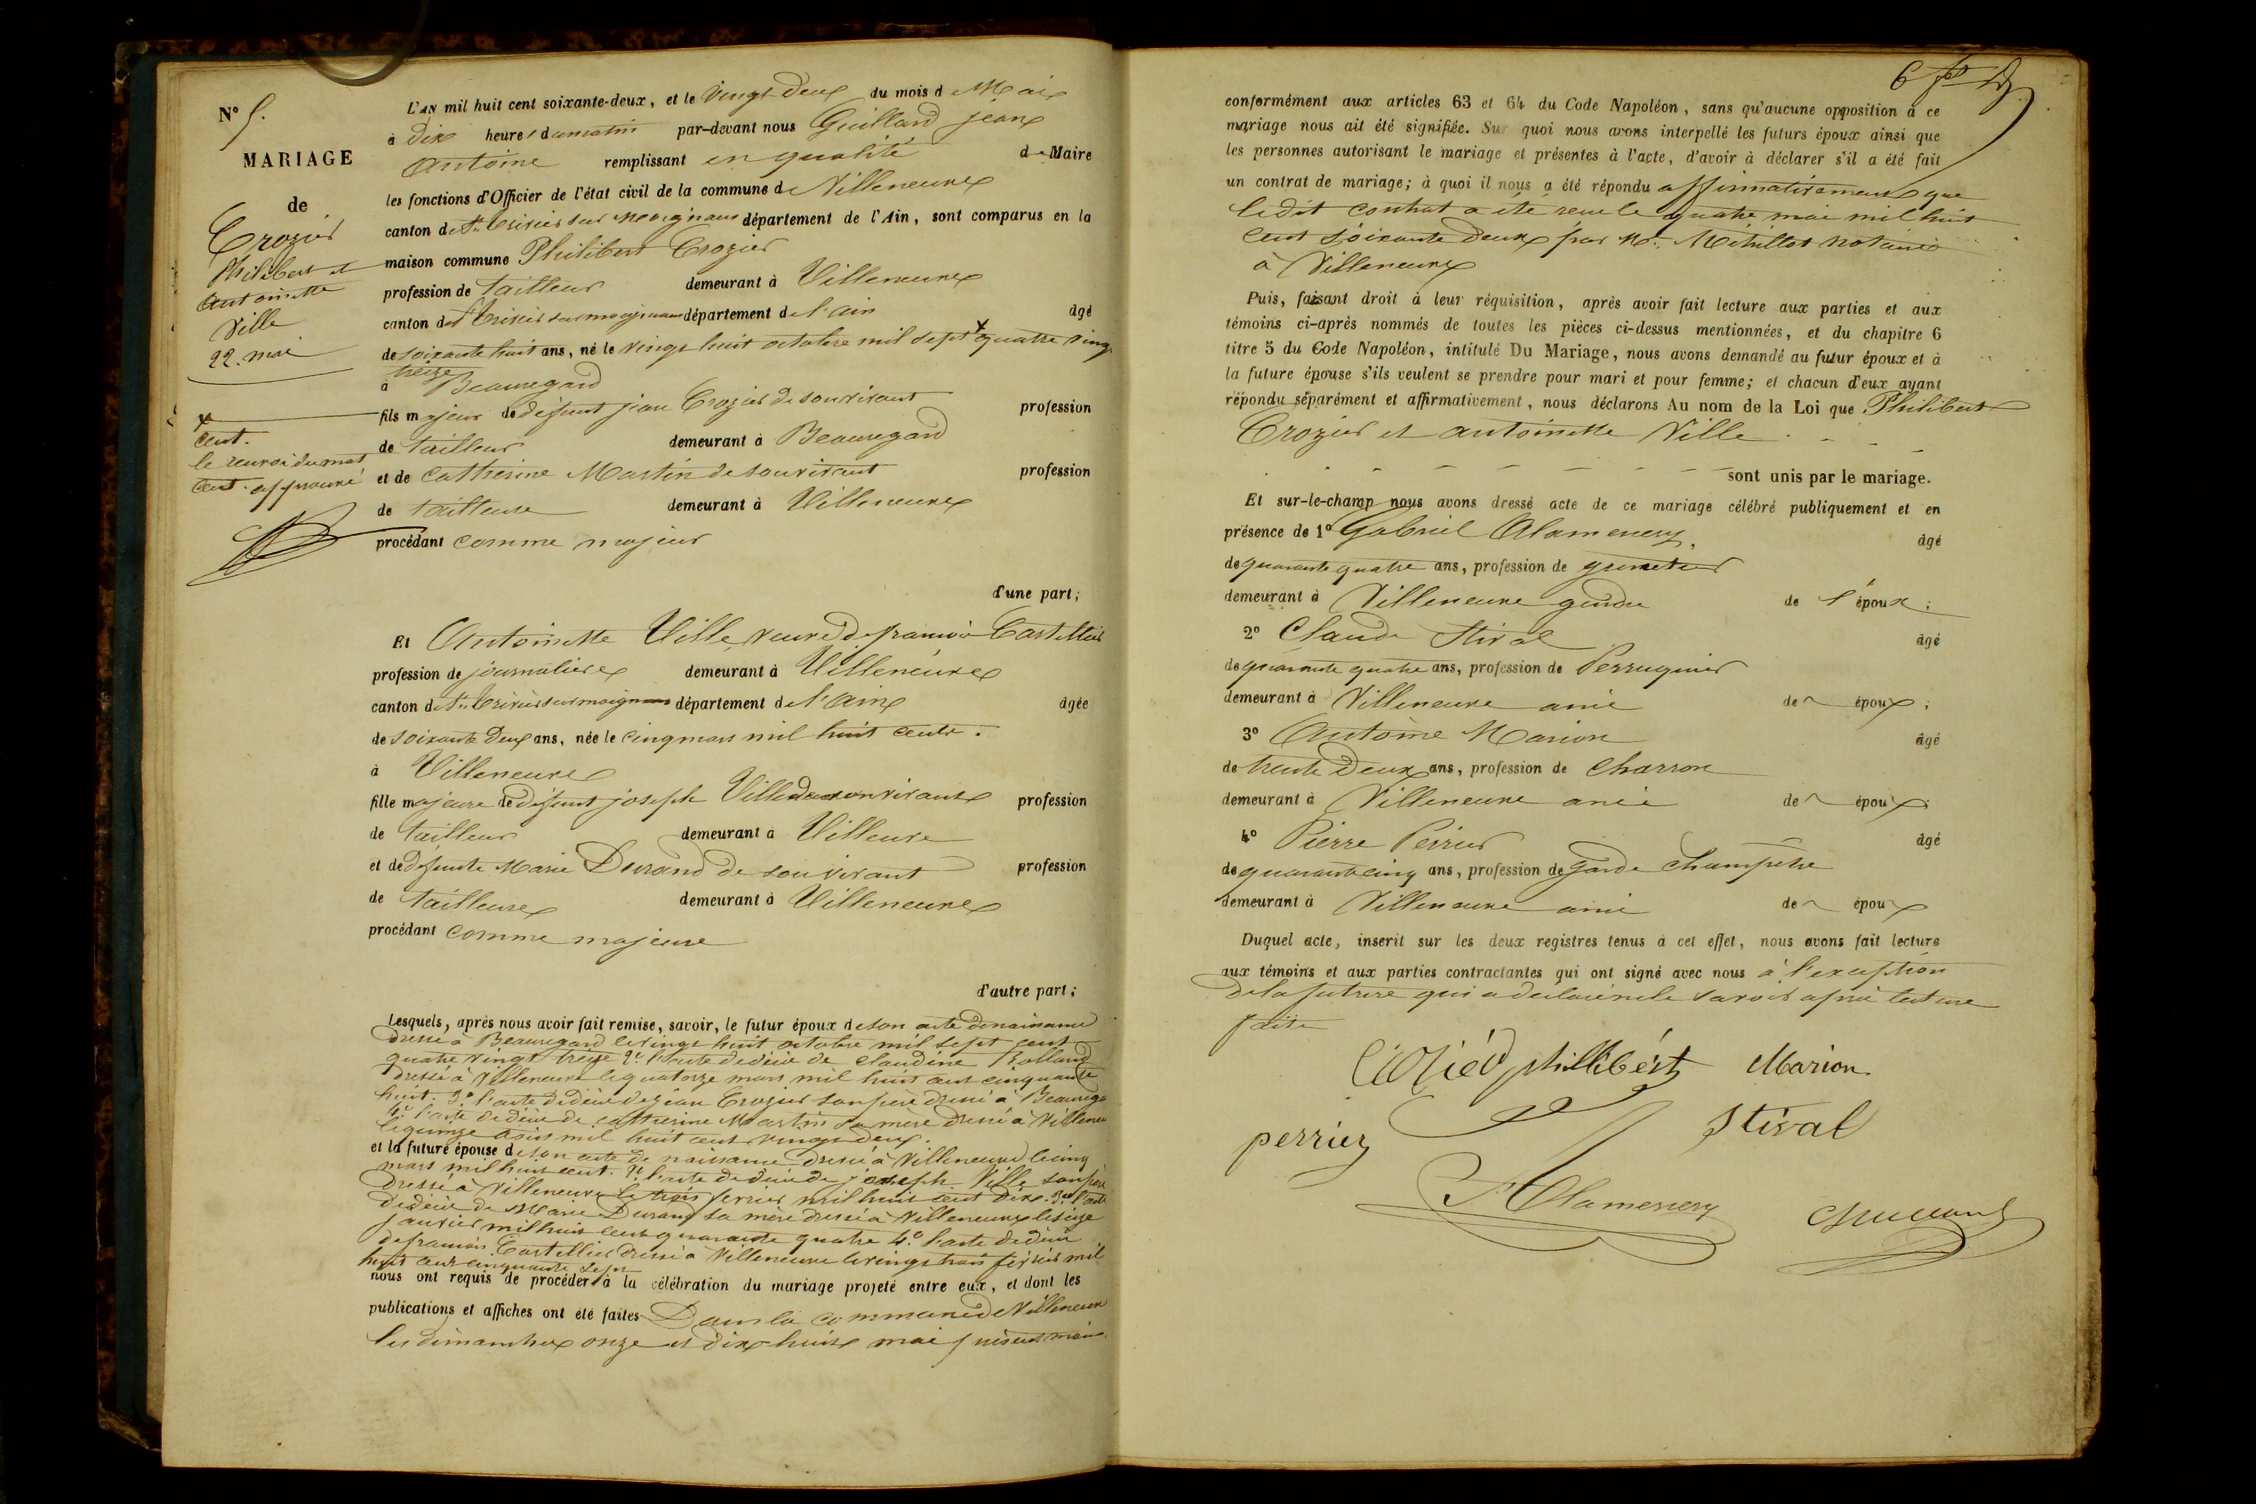 N° 5.
MARIAGE
de
Crozier
Philibert et
Antoinette
Ville
22. mai
x
cent.
le renvoi du mot
cent. approuvé
L'AN mil huit cent soixante-deux, et le vingt deux du mois de Mai
à dix heures du matin par-devant nous Guillard jean
Antoine remplissant en qualité de Maire
les fonctions d'Officier de l'état civil de la commune de Villeneuve
canton de St. Trivier sur Moignans département de l'Ain, sont comparus en la
maison commune Philibert Crozier
profession de tailleur demeurant à Villeneuve
canton de St Trivier sur moignans département de l'ain âgé
de soixante huit ans, né le vingt huit octobre mil sept x quatre vingt
treize
à Beauregard
fils majeur de défunt jean Crozier de son vivant profession
de tailleur demeurant à Beauregard
et de catherine Martin de son vivant profession
de tailleuse demeurant à Villeneuve
procédant comme majeur
d'une part;
Et Antoinette Ville, veuve de francois Castellier
profession de journalière demeurant à Villeneuve
canton de St. Trivier sur moignans département de l'ain âgée
de soixante deux ans, née le cinq mars mil huit cents.
à Villeneuve
fille majeure de défunt joseph Ville de son vivant profession
de tailleur demeurant à Villeuve
et de défunte Marie Durand de son vivant profession
de tailleuse demeurant à Villeneuve
procédant comme majeure
d'autre part;
Lesquels, après nous avoir fait remise, savoir, le futur époux de son acte de naissance
dressé à Beauregard le vingt huit octobre mil sept cent
quatre vingt treize 2° l'acte de décès de claudine Rolland
dressé à Villeneuve le quatorze mars mil huit cent cinquante
huit. 3° l'acte de décès de jean Crozier son père dressé à Beaurega
4° l'acte de décès de catherine Martin sa mère dressé à Villeneu
le quinze mil huit cent vingt deux.
et la future épouse de son acte de naissance dressé à Villeneuve le cinq
mars mil huit cent. 2° l'acte de décès de joseph Ville son père
dressé à Villeneuve le trois fevrier mil huit cent dix. 3° l'acte
de décès de Marie Durand sa mère dressé à Villeneuve le seize
janvier mil huit cent quarante quatre 4.° l'acte de décès
de francois Castellier dressé à Villeneuve le vingt trois février mil
huit cent cinquante sept
nous ont requis de procéder à la célébration du mariage projeté entre eux, et dont les
publications et affiches ont été faites Dans la commune de Villeneuve
les dimanches onze et dix huit mai présent mois
6
conformément aux articles 63 et 64 du Code Napoléon, sans qu'aucune opposition à ce
mariage nous ait été signifiée. Sur quoi nous avons interpellé les futurs époux ainsi que
les personnes autorisant le mariage et présentes à l'acte, d'avoir à déclarer s'il a été fait
un contrat de mariage; à quoi il nous a été répondu affirmativement que
ledit contrat a été reçu le quatre mai mil huit
cent soixante deux par Me. notaire
à Villeneuve
Puis, faisant droit à leur réquisition, après avoir fait lecture aux parties et aux
témoins ci-après nommés de toutes les pièces ci-dessus mentionnées, et du chapitre 6
titre 5 du Code Napoléon, intitulé Du Mariage, nous avons demandé au futur époux et à
la future épouse s'ils veulent se prendre pour mari et pour femme; et chacun d'eux ayant
répondu séparément et affirmativement, nous déclarons Au nom de la Loi que Philibert
Crozier et antoinette Ville
sont unis par le mariage.
Et sur-le-champ nous avons dressé acte de ce mariage célébré publiquement et en
présence de 1° Gabriel Alamercery, âgé
de quarante quatre ans, profession de
demeurant à Villeneuve gendre de l'époux;
2° Claude Stival âgé
de quarante quatre ans, profession de Perruquier
demeurant à Villeneuve ami de époux;
3° Antoine Marion âgé
de trente deux ans, profession de charron
demeurant à Villeneuve ami de époux;
4° Pierre Perrier âgé
de quarante cinq ans, profession de garde champêtre
demeurant à Villeneuve ami de époux
Duquel acte, inscrit sur les deux registres tenus à cet effet, nous avons fait lecture
aux témoins et aux parties contractantes qui ont signé avec nous à l'exception
de la future qui a déclaré ne le savoir après lecture
faite
philibért Marion
perrier Stival
Alamercery Guillard